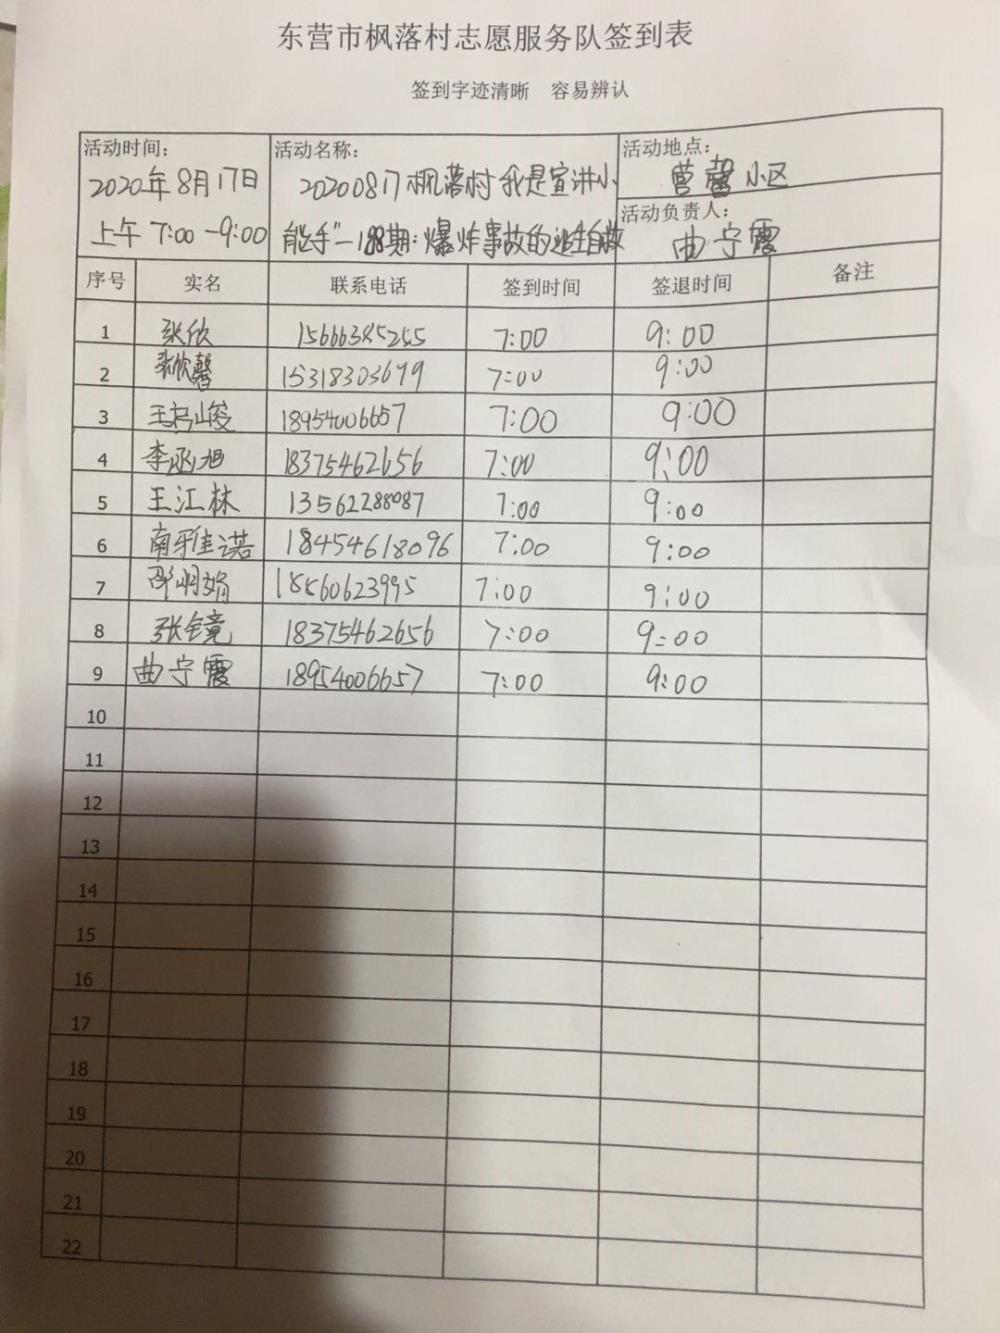 东营市枫落村志愿服务队签到表
签到字迹清晰 容易辨认
活动时间: 活动名称: 活动地点:
2020年8月17日 20200817枫落村"我是宣讲小 营馨小区
上午 7:00-9:00 能手"-188期:爆炸事故的逃生自救
活动负责人:
曲宁霞
序号 实名 联系电话 签到时间 签退时间 备注
1 张欣 15666385255 7:00 9:00
2 张欣馨 15318303679 7:00 9:00
3 王启峻 18954006657 7:00 9:00
4 李丞旭 18375462656 7:00 9:00
5 王江林 13562288087 7:00 9:00
6 南雅诺 18454618096 7:00 9:00
7 邵明娟 18860623995 7:00 9:00
8 张镜 18375462656 7:00 9:00
9 曲宁霞 18954006657 7:00 9:00
10
11
12
13
14
15
16
17
18
19
20
21
22